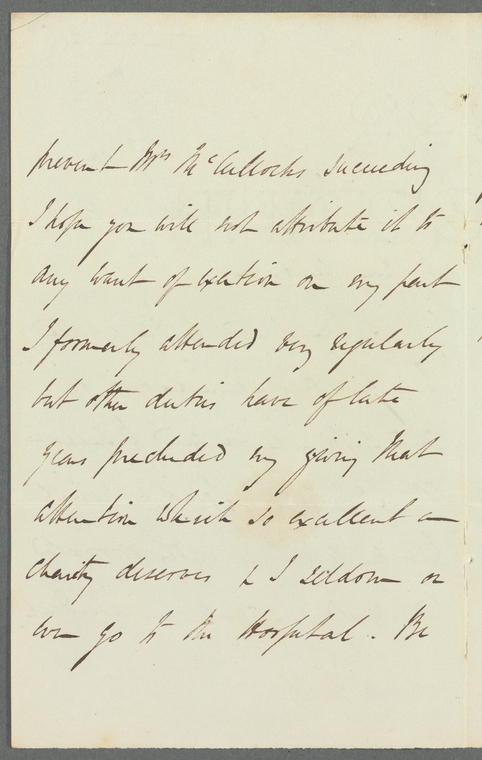 prevent Mrs McCullochs succeeding
I hope you will not attribute it to
any want of exertion on my part
I formerly attended very regularly
but other duties have of late
years precluded my giving that
attention which so excellent a
charity deserves & I seldom or
ever go to the Hospital. Be